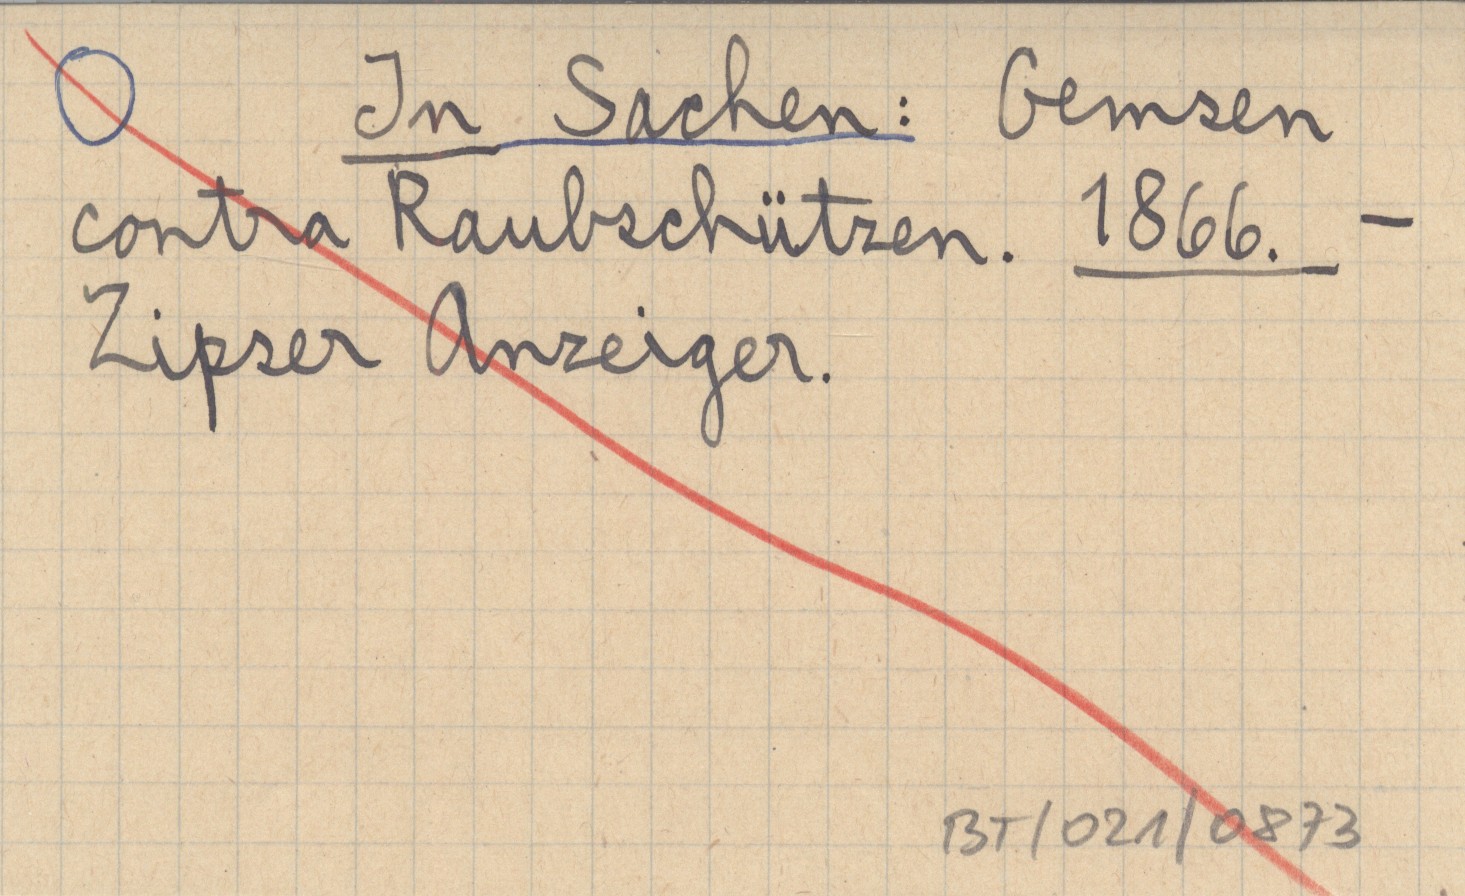 In Sachen: Gemsen
contra Raubschützen. 1866. –
Zipser Anzeiger.
BT/021/0873